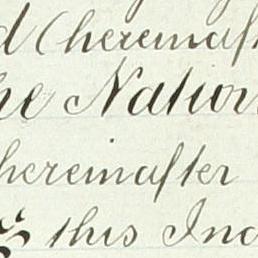 (hereinaft
he Nation
hereinafter
& this Ind